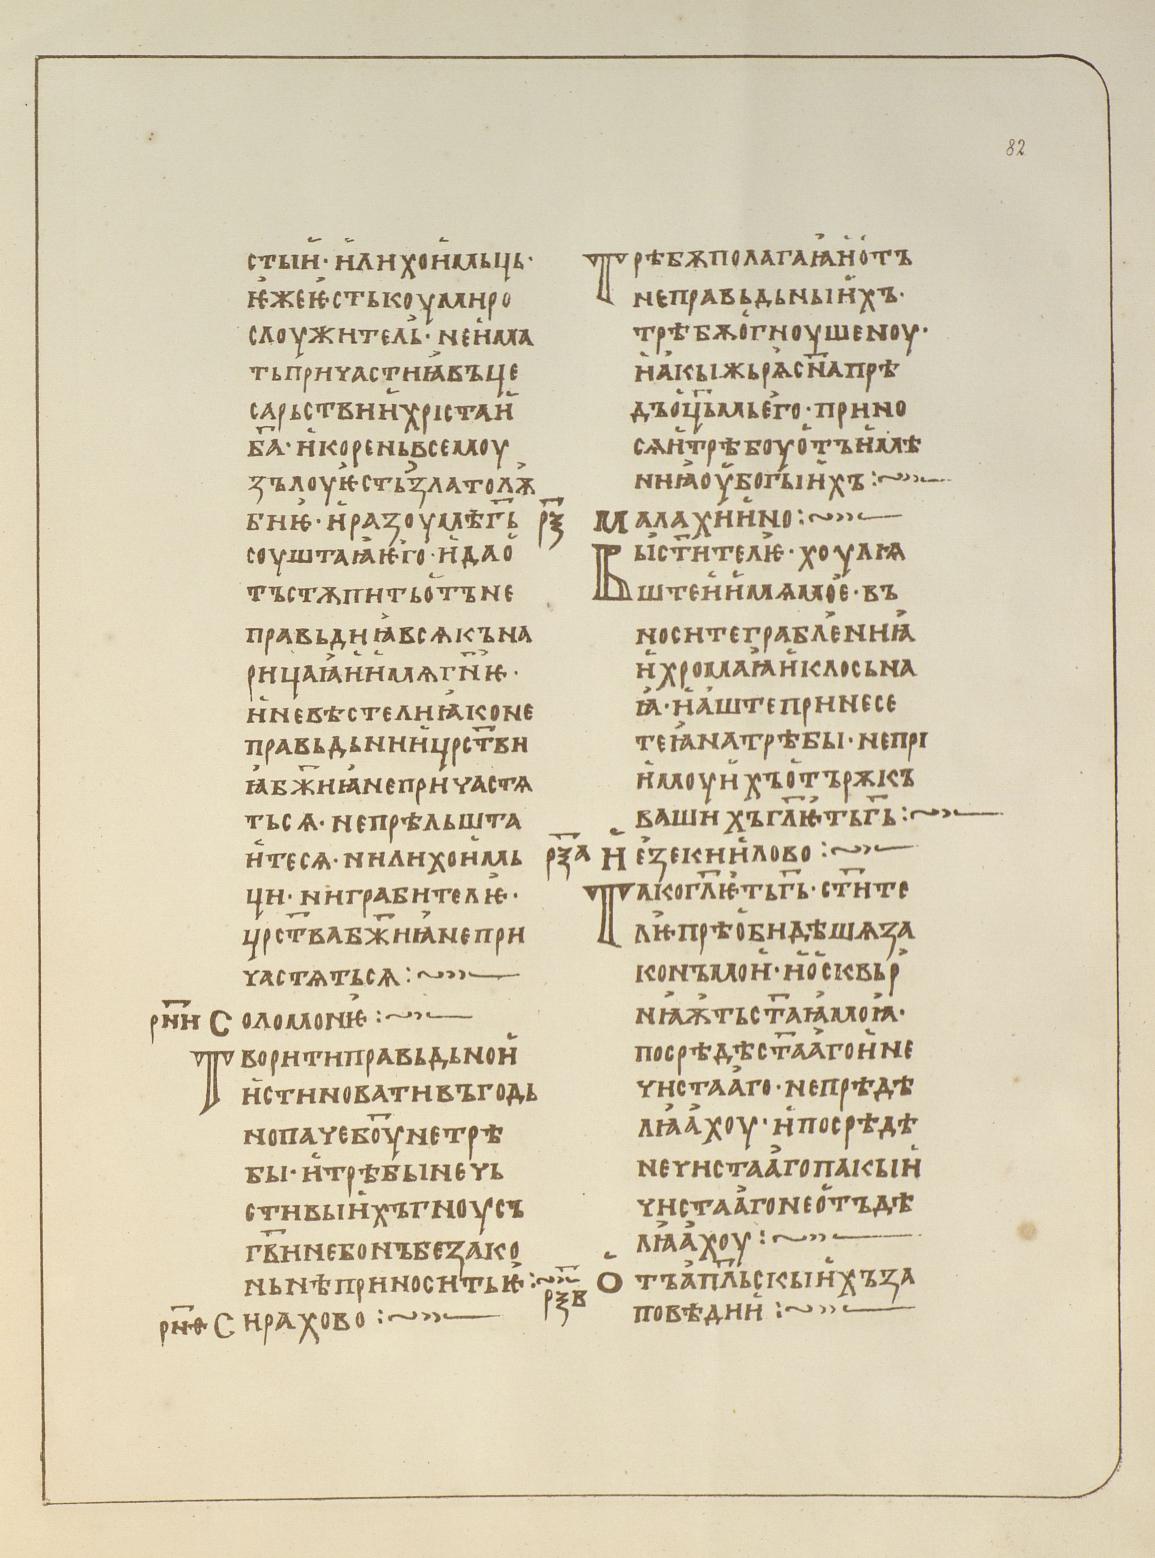 82
стыи҆· и҆лихои҆мьць·
ѥ҆жеѥ҆стькоумиро
слоужитель҆· неи҆ма
тьпричастиꙗ҆въце
сарьствии҆хрістаи҆
б҃а· и҆кореньвсемоу
зълоуѥ҆стьз҆латолѫ҆
биѥ҆· и҆разоумѣг҃ь
соуштаꙗ҆ѥ҆го· и҆дао҆
тъстѫпитьо҆тъне
правьдиꙗ҆всѧкъна
рицаꙗ҆и҆и҆мѧг҃нѥ·
и҆невѣстелиꙗ҆коне
правьдьнии҆цр҃стви
ꙗ҆бж҃иꙗ҆непричастѧ
тьсѧ· непрѣльшта
и҆тесѧ· нилихои҆мь
ци· ниграбителѥ҆·
цр҃ствабж҃иꙗ҆непри
частѧтьсѧ:~»—
рн҃и Соломонѥ҆:~»—
Творитиправьдьнои҆
и҆стиновативъгодь
нопачебо҃унетрѣ
бы· и҆трѣбынечь
стивыи҆хъгноусъ
гв҃инебонъбезако
ньнѣприноситьѥ҆:~»~
рн҃ѳ Сирахово:~»—
Трѣбѫполагаꙗ҆и҆о҆тъ
неправьдьныи҆хъ·
трѣбѫо҆гноушеноу·
и҆а҆кыжьрѧ҆сн҃апрѣ
дъо҆ц҃ьмье҆го· прино
сѧи҆трѣбоуо҆тъи҆мѣ
ниꙗ҆оу҆богыи҆хъ:~»—
рѯ҃ Малахии҆но:~»—
Выст҃ителѥ· хоулѩ
штеи҆и҆мѧмое҆· въ
носитеграбле҆ниꙗ҆
и҆хромаꙗ҆и҆клосьна
ꙗ҆· и҆а҆штепринесе
теꙗ҆натрѣбы· непрі
и҆моуи҆хъо҆търѫкъ
вашихъгл҃ѥтьг҃ь:~»—
рѯ҃а И҆езекии҆лово:~»—
Такогл҃ѥтьг҃ь· ст҃ите
лѥ҆прѣо҆бидѣшѧза
конъмои҆· и҆о҆сквьр҆
ниꙗ҆ѫ҆тьст҃аꙗ҆моꙗ҆·
посрѣдѣст҃аа҆гои҆не
чистаа҆го· непрѣдѣ
лꙗ҆а҆хоу· и҆посрѣдѣ
нечистаа҆гопакыи҆
чистаа҆гонео҆тъдѣ
лꙗ҆а҆хоу:~»—
рѯ҃в О҆тъа҆пл҃ьскыи҆хъза
повѣдии҆:~»—